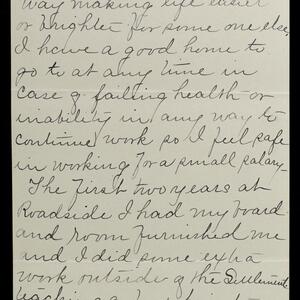 way making life easier
or brighter for some one else,
I have a good home to
go to at any time in
case of failing health or
inability in any way to
continue work so I feel safe
in working for a small salary—
The first two years at
Roadside I had my board
and room furnished me
and I did some extra
work outside of the Settlement